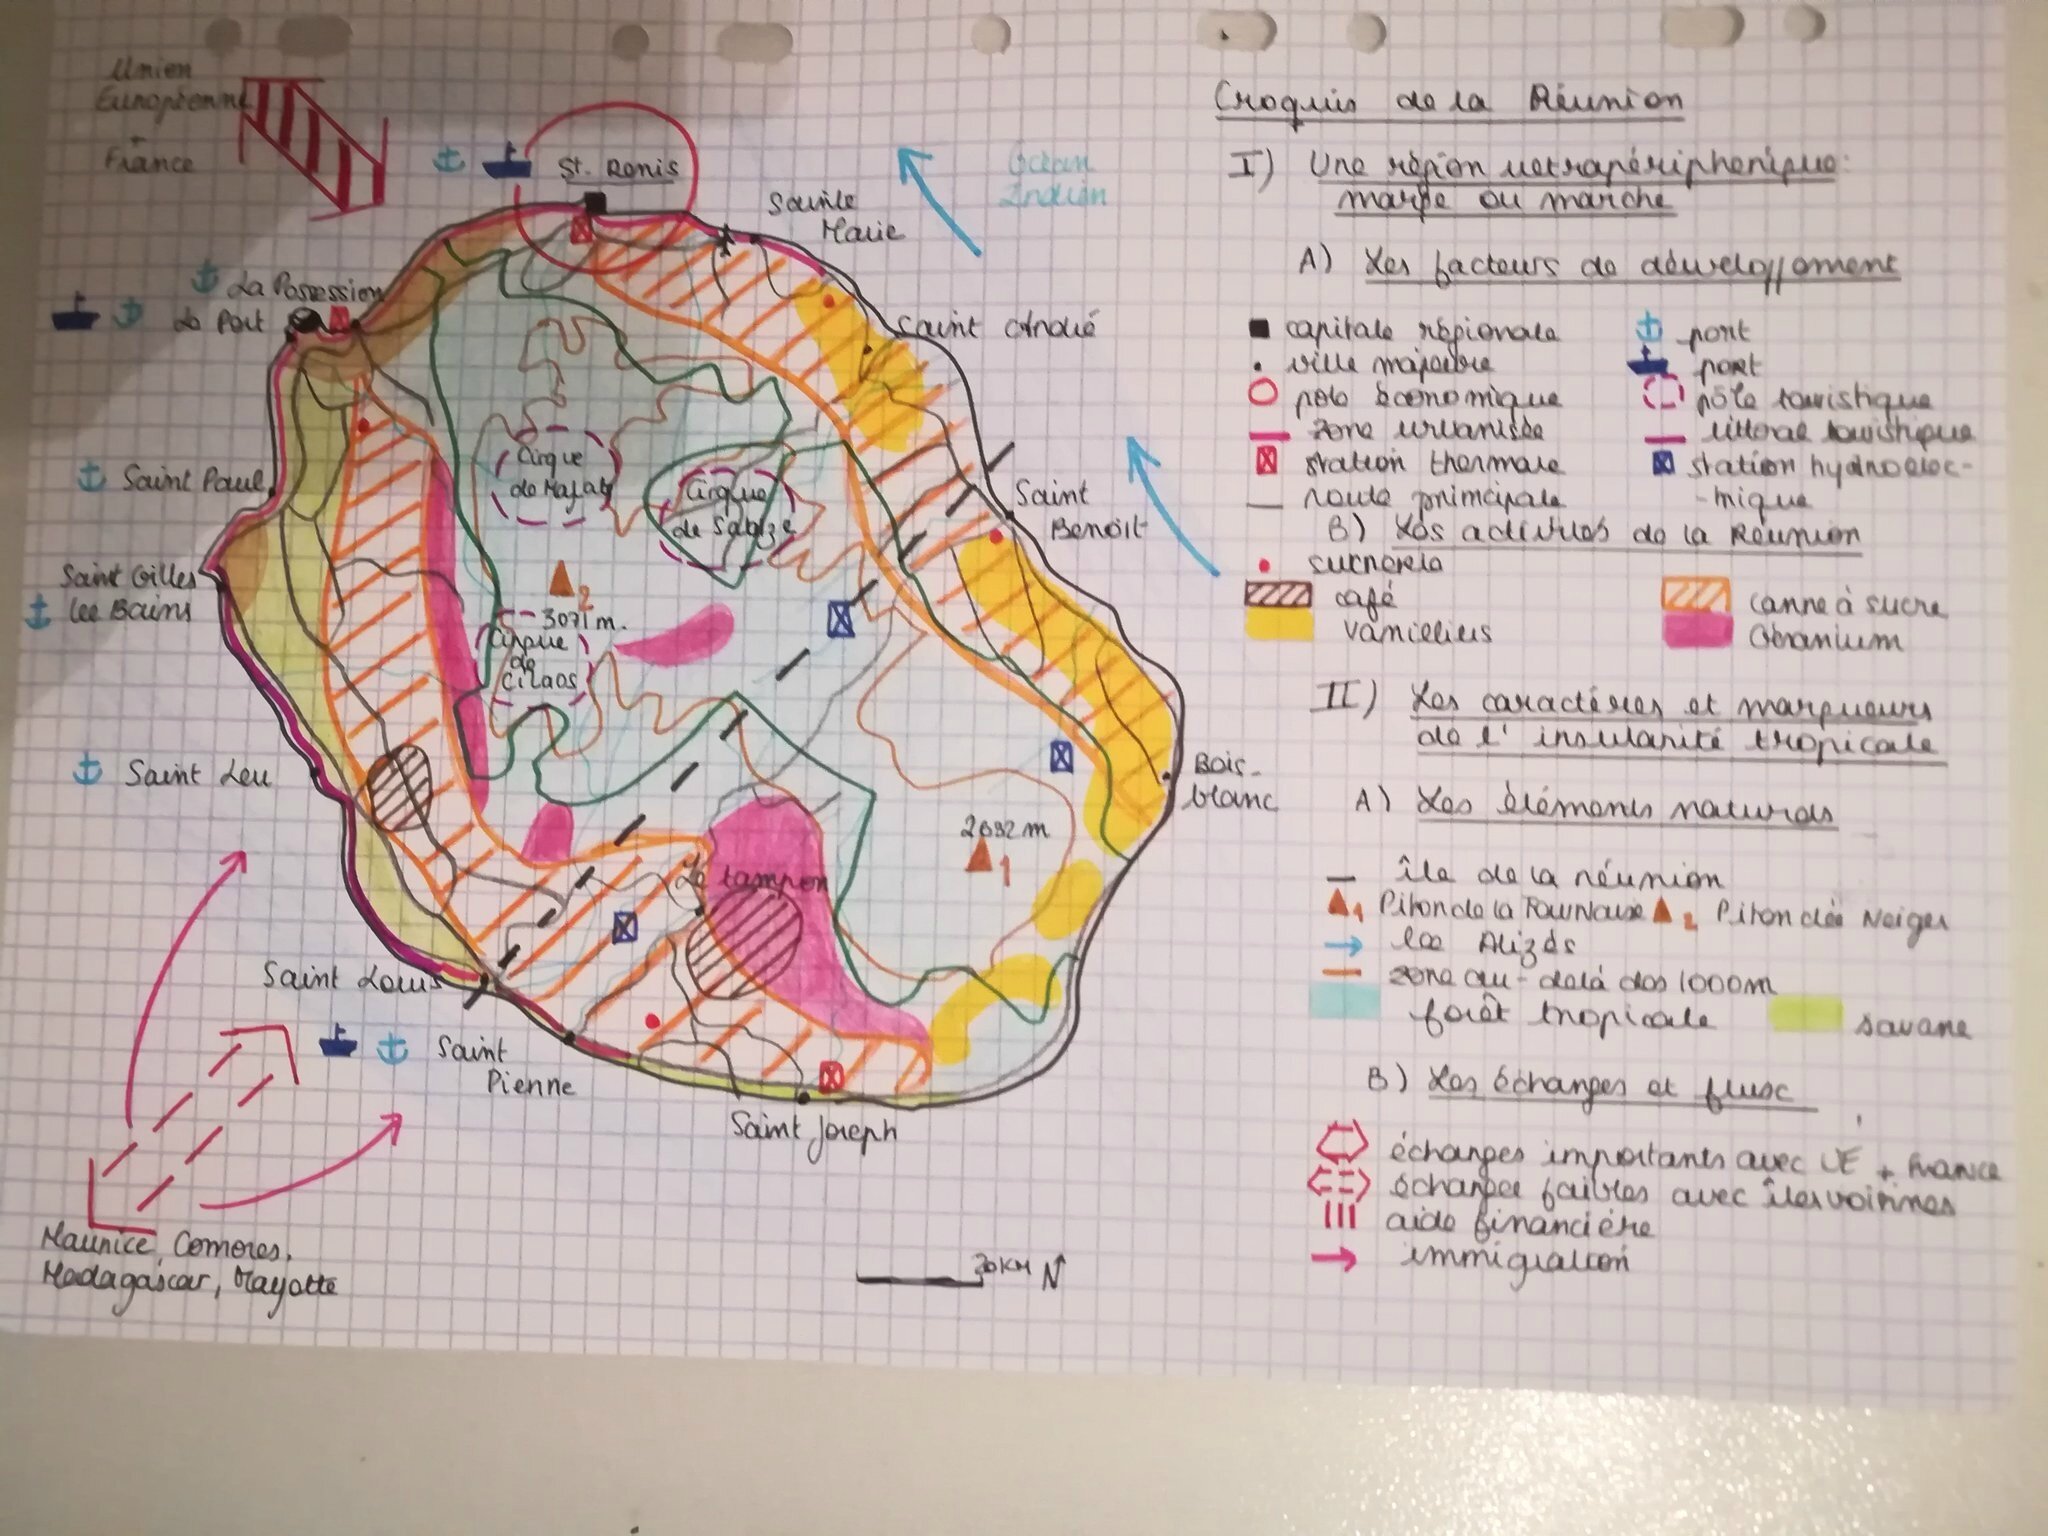 Union
Européenne
+
France
St. Denis
Océan
Indien
Sainte
Marie
La Possession
Le Port
Saint André
Cirque
de Mafate
Cirque
de Salazie
Saint Paul
Saint
Benoît
Saint Gilles
les Bains
2
3071 m.
Cirque
de
Cilaos
Saint Leu
Bois-
blanc
2632 m
1
Le tampon
Saint Louis
Saint
Pierre
Saint Joseph
Maurice, Comores,
Madagascar, Mayotte
20KM N
Croquis de la Réunion
I) Une région ultrapériphérique:
marge ou marche
A) Les facteurs de développement
capitale régionale
port
ville majeure
port
pôle économique
pôle touristique
zone urbanisée
littoral touristique
station thermale
station hydroélec-
-mique
route principale
B) Les activités de la Réunion
sucrerie
café
canne à sucre
vanilliers
Géranium
II) Les caractères et marqueurs
de l'insularité tropicale
A) Les éléments naturels
île de la réunion
1 Piton de la Fournaise 2 Piton des Neiges
les Alizés
zone au-delà des 1000m
forêt tropicale
savane
B) Les échanges et flux
échanges importants avec UE + France
échanges faibles avec îles voisines
aide financière
immigration